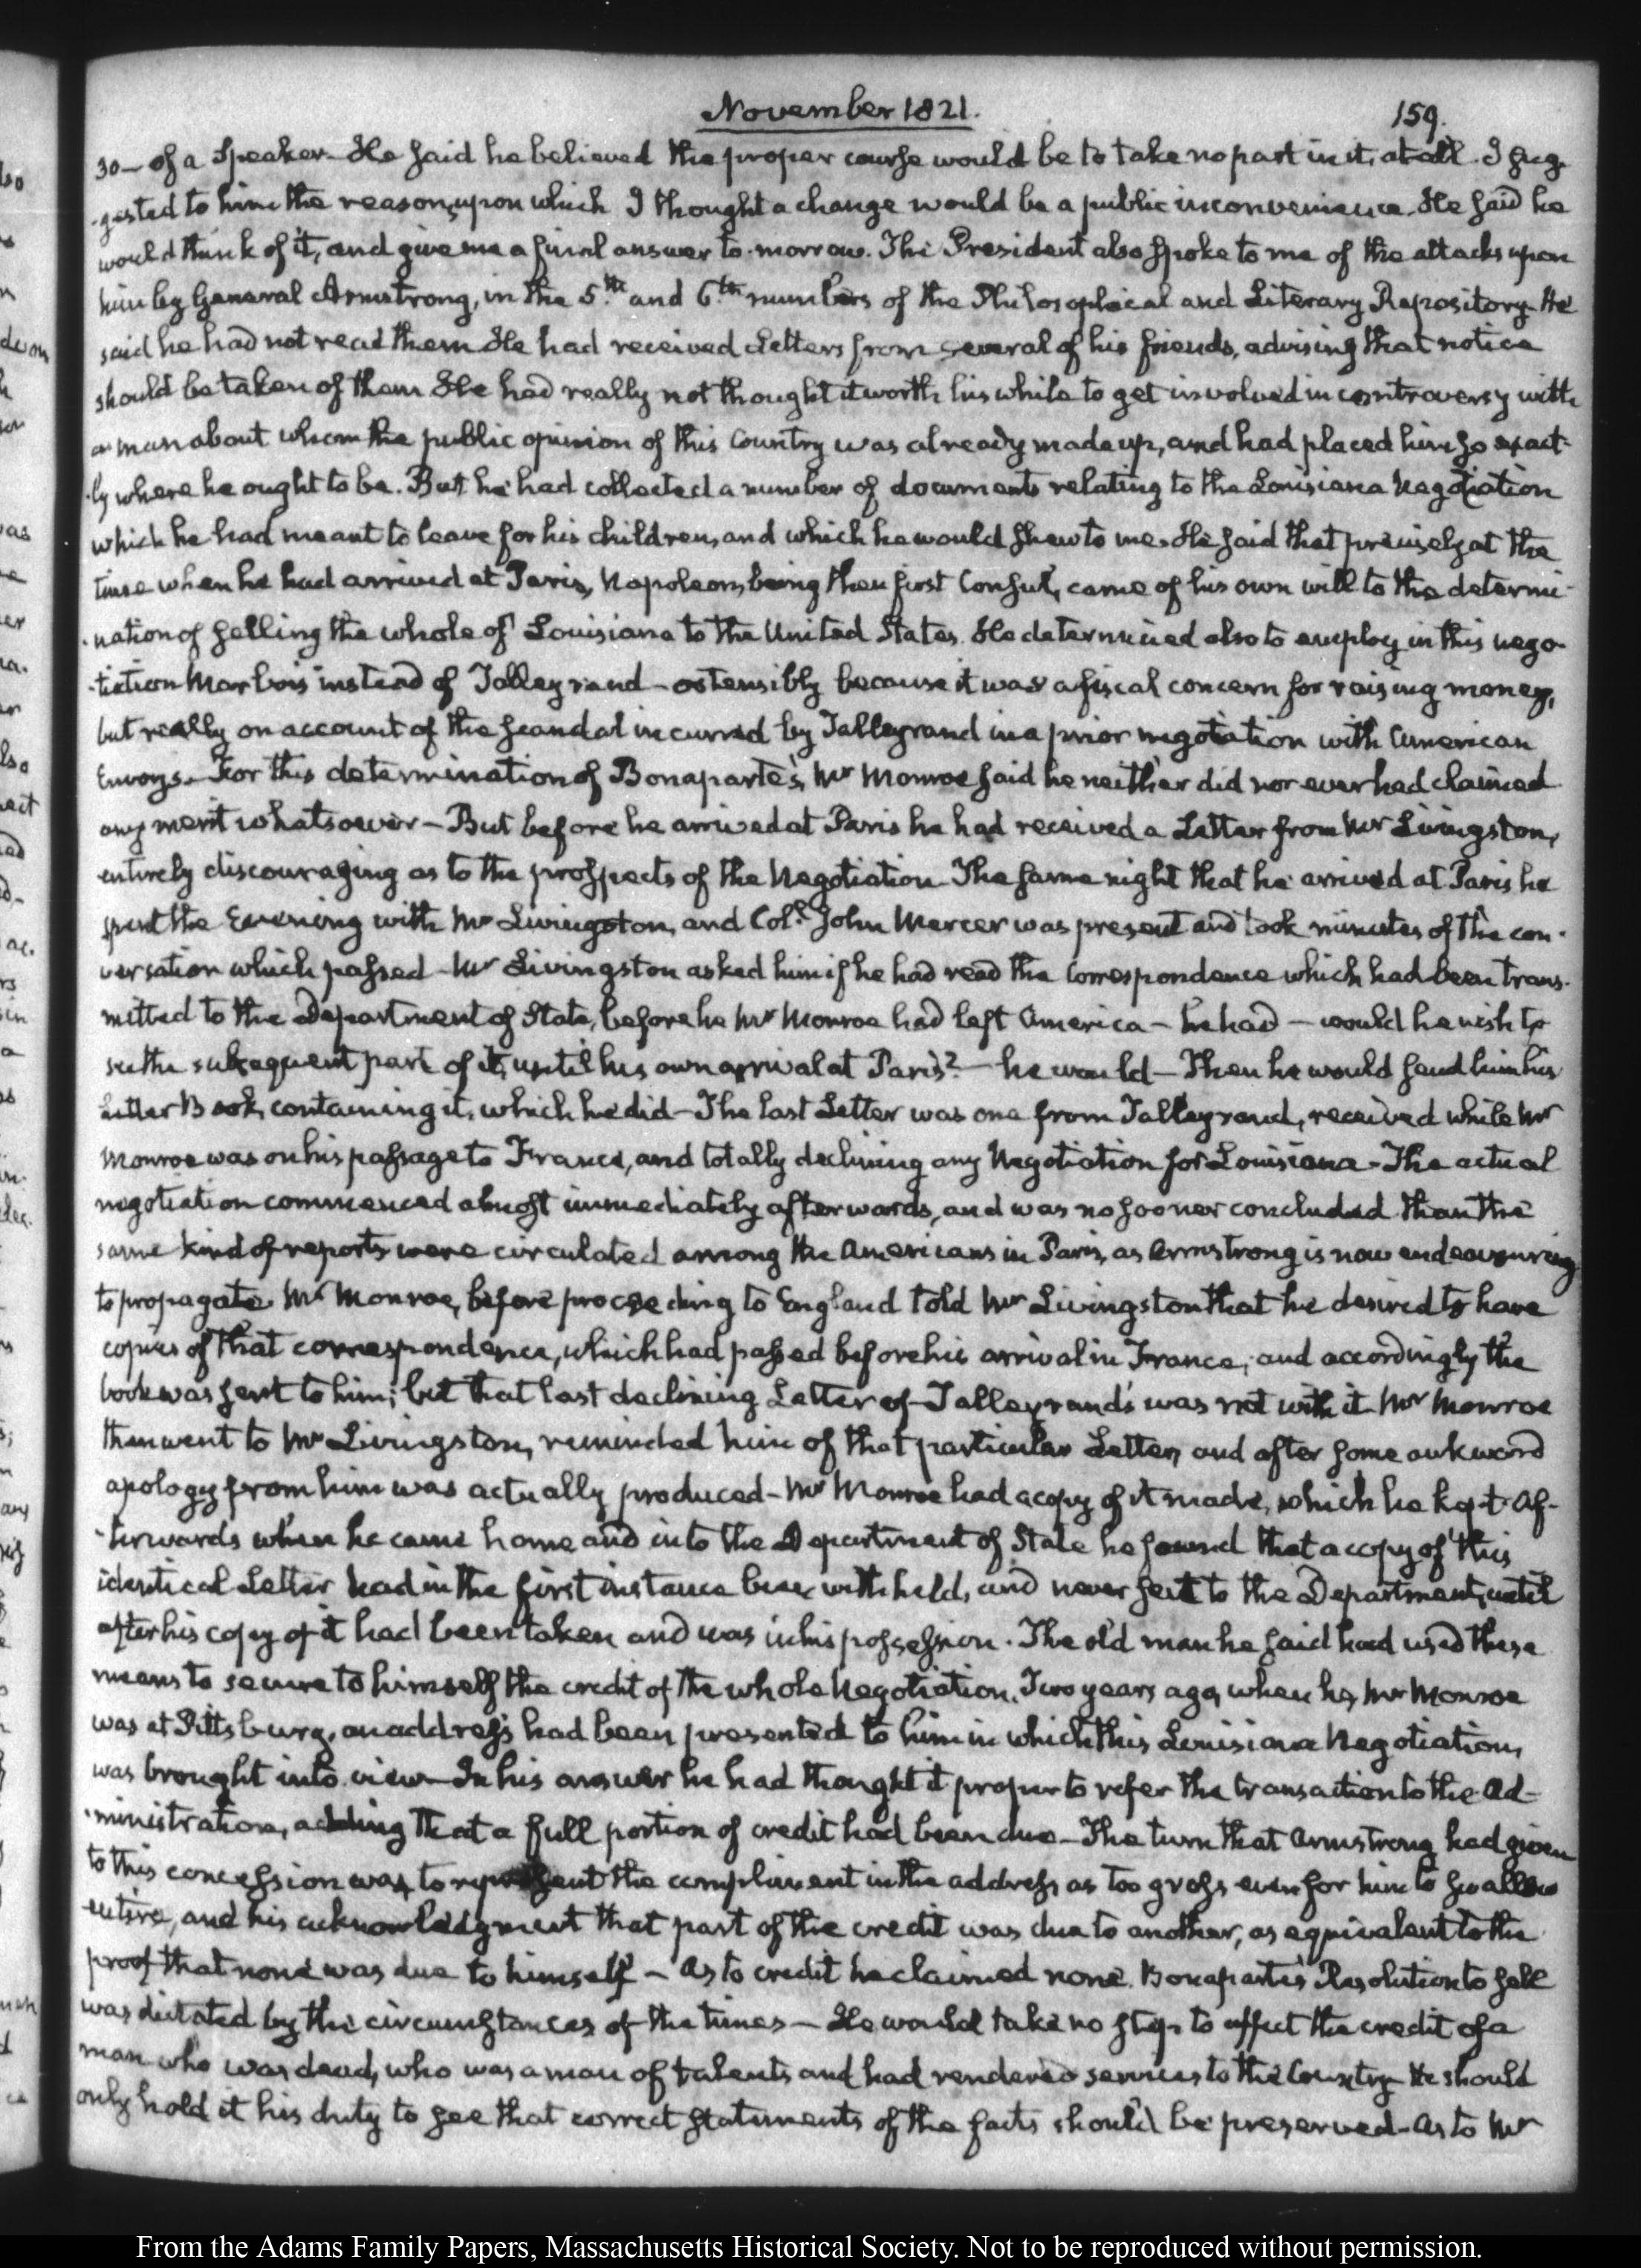 November 1821.
159.
30— of a Speaker. He said he believed the proper course would be to take no part in it, at all. I sug-
-gested to him the reasons, upon which I thought a change would be a public inconvenience. He said he
would think of it, and give me a final answer to-morrow. The President also spoke to me of the attacks upon
him by General Armstrong, in the 5.th and 6.th numbers of the Philosophical and Literary Repository. He
said he had not read them. He had received Letters from several of his friends, advising that notice
should be taken of them. He had really not thought it worth his while to get involved in controversy with
a man about whom the public opinion of this Country was already made up, and had placed him so exact-
-ly where he ought to be. But he had collected a number of documents relating to the Louisiana Negotiation
which he had meant to leave for his children, and which he would shew to me. He said that precisely at the
time when he had arrived at Paris, Napoleon, being then first Consul, came of his own will to the determi-
-nation of selling the whole of Louisiana to the United States. He determined also to employ in this nego-
-tiation Marbois instead of Talleyrand—ostensibly because it was a fiscal concern for raising money,
but really on account of the scandal incurred by Talleyrand in a prior negotiation with American
Envoys. For this determination of Bonaparte's, Mr Monroe said he neither did nor ever had claimed
any merit whatsoever—But before he arrived at Paris he had received a Letter from Mr Livingston,
entirely discouraging as to the prospects of the Negotiation. The same night that he arrived at Paris he
spent the Evening with Mr Livingston, and Coll. John Mercer was present and took minutes of the con-
versation which passed—Mr Livingston asked him if he had read the Correspondence which had been trans-
mitted to the Department of State, before he Mr Monroe had left America—he had—would he wish to
see the subsequent part of it, until his own arrival at Paris?—he would—Then he would send him his
Letter Book, containing it, which he did—The last Letter was one from Talleyrand, received while Mr
Monroe was on his passage to France, and totally declining any Negotiation for Louisiana—The actual
negotiation commenced almost immediately afterwards, and was no sooner concluded than the
same kind of reports were circulated among the Americans in Paris, as Armstrong is now endeavouring
to propagate. Mr Monroe, before proceeding to England told Mr Livingston that he desired to have
copies of that correspondence, which had passed before his arrival in France; and accordingly the
book was sent to him; but that last declining Letter of Talleyrand's was not with it. Mr Monroe
then went to Mr Livingston, reminded him of that particular Letter, and after some awkward
apology from him was actually produced—Mr Monroe had a copy of it made, which he kept. Af-
-terwards when he came home and into the Department of State he found that a copy of this
identical Letter had in the first instance been withheld, and never sent to the Department, until
after his copy of it had been taken and was in his possession. The old man he said had used these
means to secure to himself the credit of the whole Negotiation. Two years ago, when he, Mr Monroe
was at Pittsburg, an address had been presented to him in which this Louisiana Negotiation,
was brought into view—In his answer he had thought it proper to refer the transaction to the Ad-
-ministration, adding that a full portion of credit had been due—The turn that Armstrong had given
to this concession was to represent the compliment in the address, as too gross even for him to swallow
entire, and his acknowledgment that part of the credit was due to another, as equivalent to the
proof that none was due to himself—As to credit he claimed none. Bonaparte's Resolution to sell
was dictated by the circumstances of the times—He would take no step to affect the credit of a
man who was dead, who was a man of talents, and had rendered services to the Country. He should
only hold it his duty to see that correct statements of the facts should be preserved—As to Mr
From the Adams Family Papers, Massachusetts Historical Society. Not to be reproduced without permission.